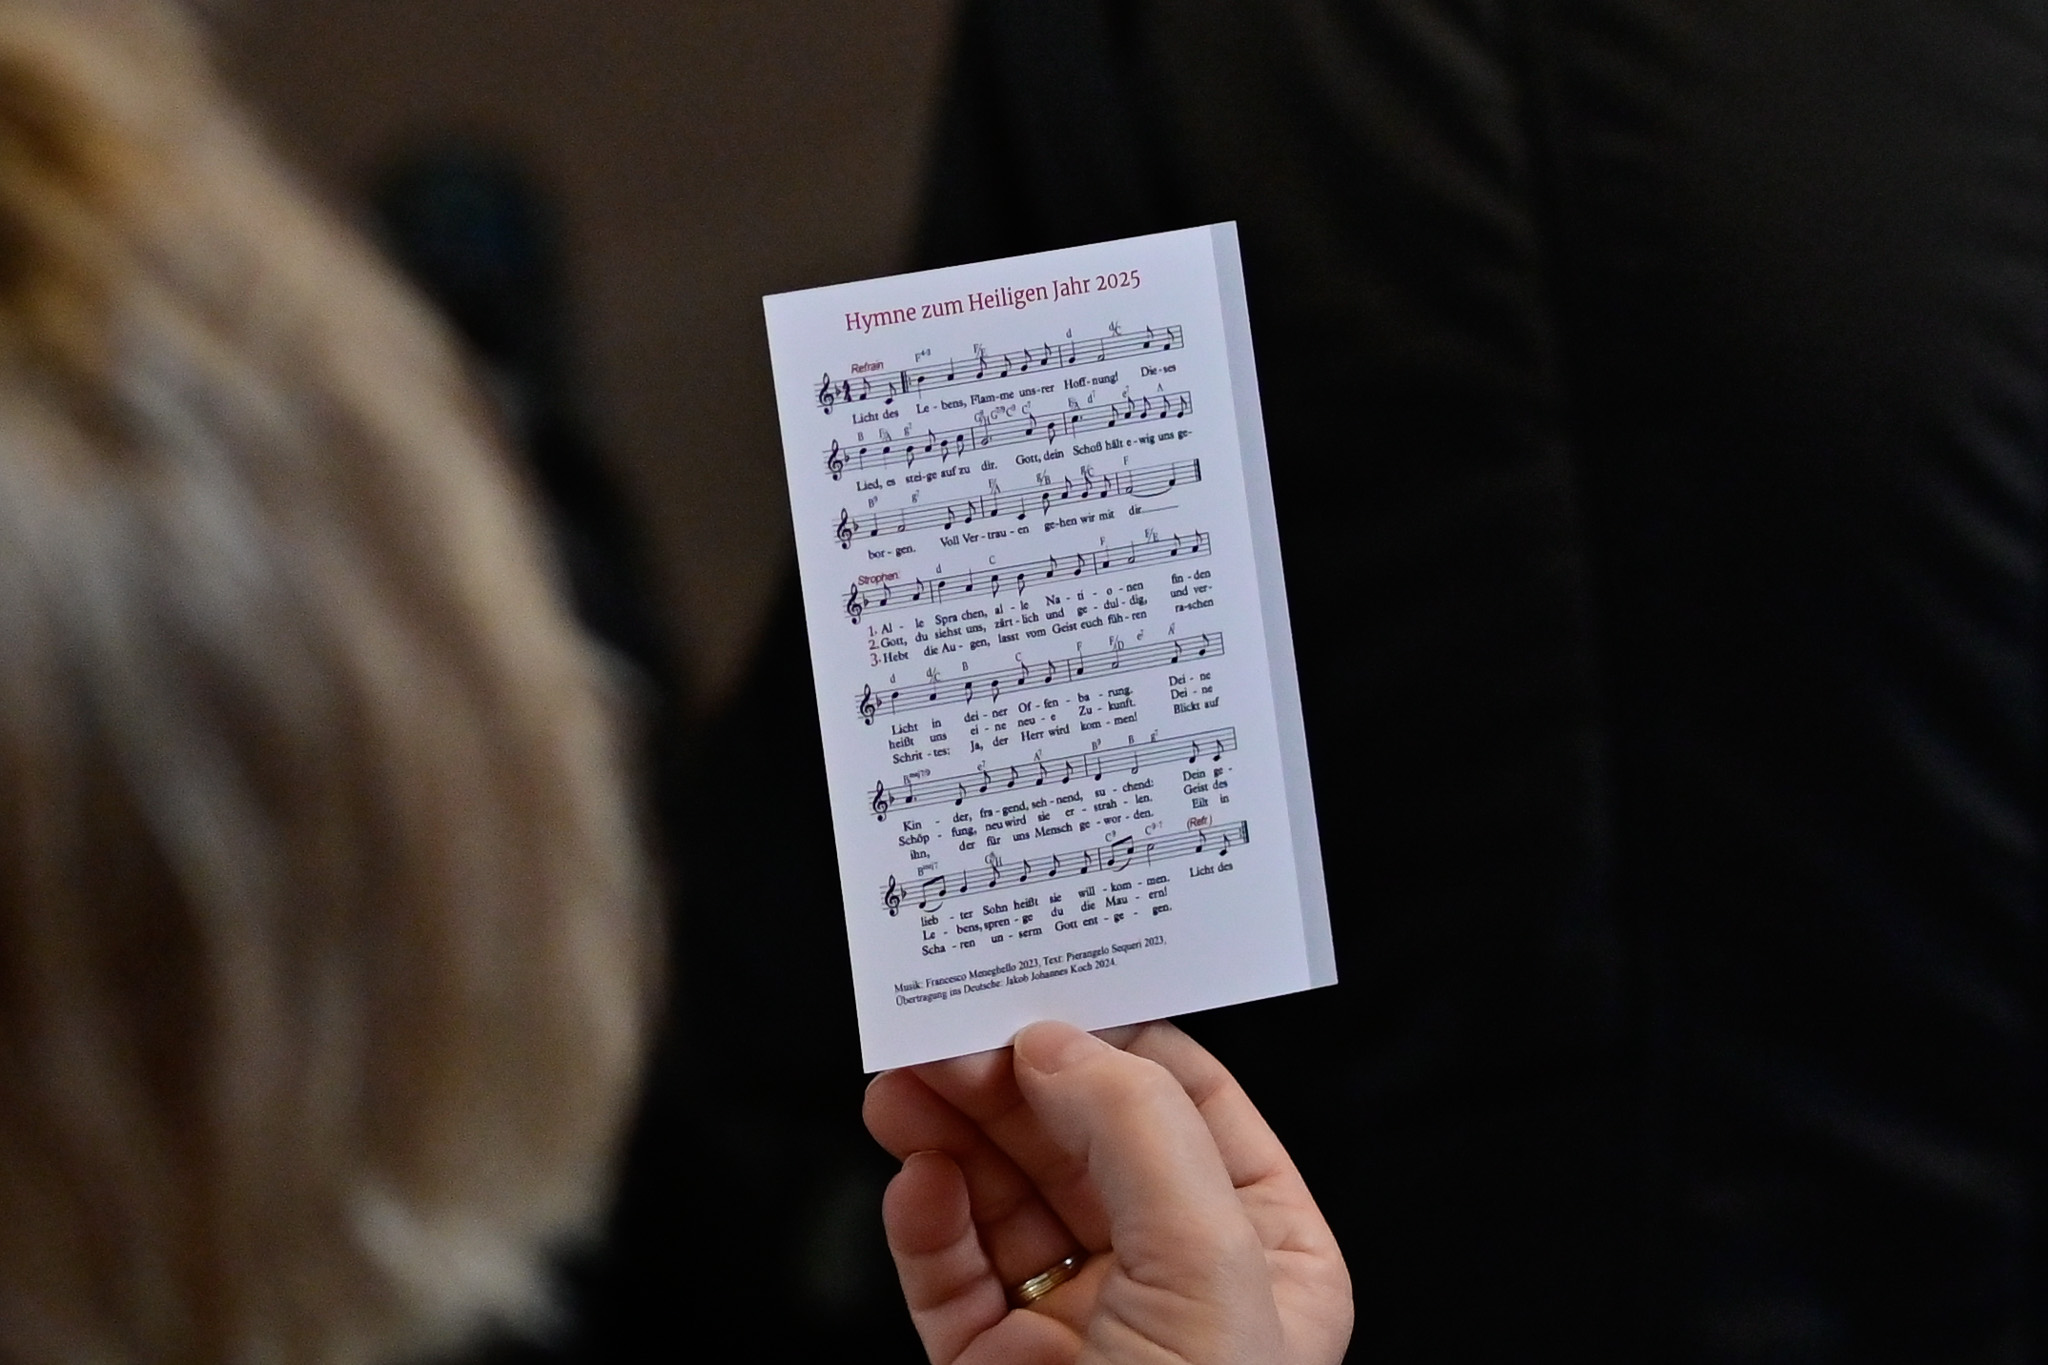 Hymne zum Heiligen Jahr 2025
Refrain
F⁴⁻³ F/E d d/C
Licht des Le - bens, Flam-me uns-rer Hoff-nung! Die-ses
B F/A g⁷ C⁷ F/A d⁷ e⁷ A
Lied, es stei-ge auf zu dir. Gott, dein Schoß hält e-wig uns ge-
B⁹ g⁷ F/A g/B g/C F
bor - gen. Voll Ver-trau-en ge-hen wir mit dir.
Strophen:
d C F F/E
1. Al - le Spra chen, al - le Na - ti - o - nen fin - den
2. Gott, du siehst uns, zärt-lich und ge - dul - dig, und ver-
3. Hebt die Au - gen, lasst vom Geist euch füh - ren ra-schen
d d/C B C F F/D e⁷ A
Licht in dei - ner Of - fen - ba - rung. Dei - ne
heißt uns ei - ne neu - e Zu - kunft. Dei - ne
Schrit - tes: Ja, der Herr wird kom - men! Blickt auf
Bmaj7/9 e⁷ A⁷ B⁹ B g⁷
Kin - der, fra - gend, seh - nend, su - chend: Dein ge -
Schöp - fung, neu wird sie er - strah - len. Geist des
ihn, der für uns Mensch ge - wor - den. Eilt in
Bmaj7 C⁹ C⁹⁻⁷ (Refr.)
lieb - ter Sohn heißt sie will - kom - men. Licht des
Le - bens, spren - ge du die Mau - ern!
Scha - ren un - serm Gott ent - ge - gen.
Musik: Francesco Meneghello 2023, Text: Pierangelo Sequeri 2023,
Übertragung ins Deutsche: Jakob Johannes Koch 2024.